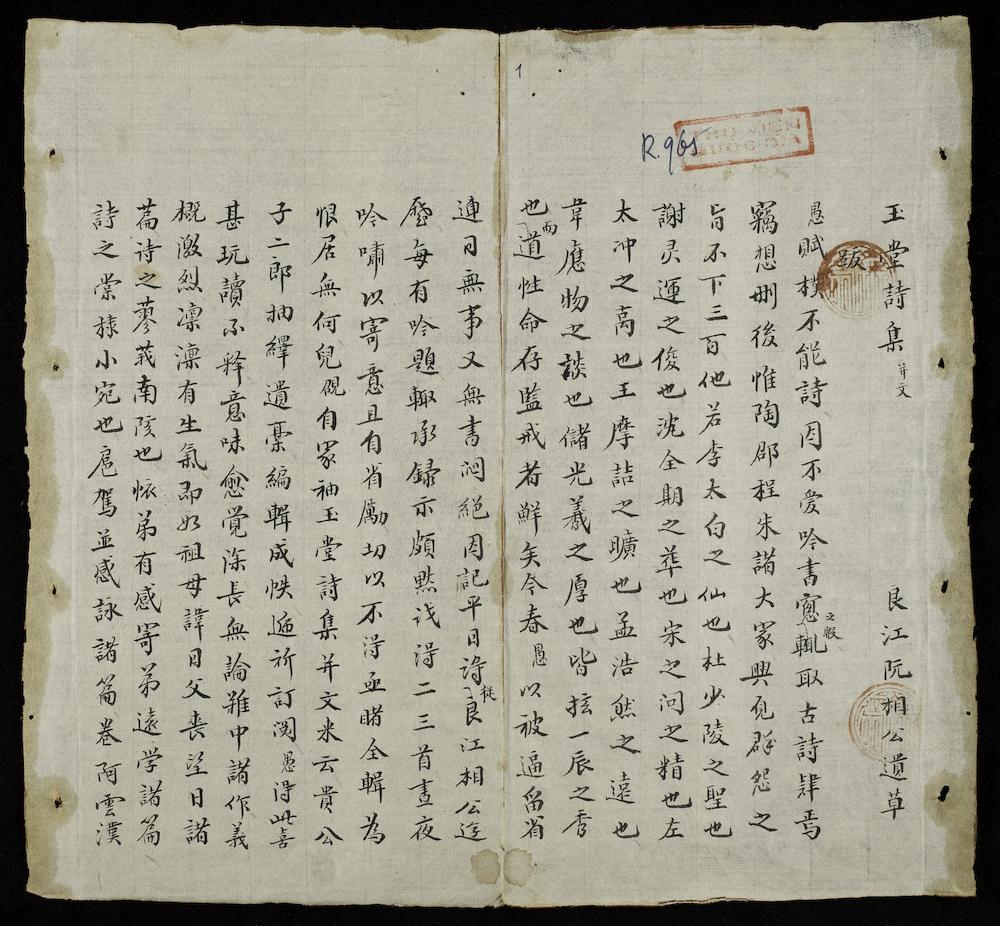 1
R.965
THƯ VIỆN
QUỐC GIA
玉堂詩集并文 良江阮相公遺草
跋
愚賦樸不能詩因不愛吟書窓之暇輒取古詩肄焉
竊想刪後惟陶邵程朱諸大家興皃群怨之
旨不下三百他若李太白之仙也杜少陵之聖也
謝灵運之俊也沈全期之萃也宋之问之精也左
太冲之高也王摩詰之曠也孟浩然之遠也
韋應物之談也儲光羲之厚也皆擅一辰之秀
也而道性命存監戒者鮮矣今春愚以被逼留省
連日無事又無書悶絕因記平日詩從良江相公遊
歷每有吟題輒承録示頗熟誦得二三首晝夜
吟嘯以寄意且有省勵切以不得亟睹全輯為
恨居無何兒覬自家袖玉堂詩集并文来云貴公
子二郎抽繹遺稾編輯成帙逓祈訂閱愚得此喜
甚玩讀不释意味愈覺深長無論难中諸作義
概激烈凛凛有生氣即如祖母諱日父喪望日諸
篇詩之蓼莪南陔也懷弟有感寄弟遠学諸篇
詩之棠棣小宛也扈駕並感詠諸篇卷阿雲漢